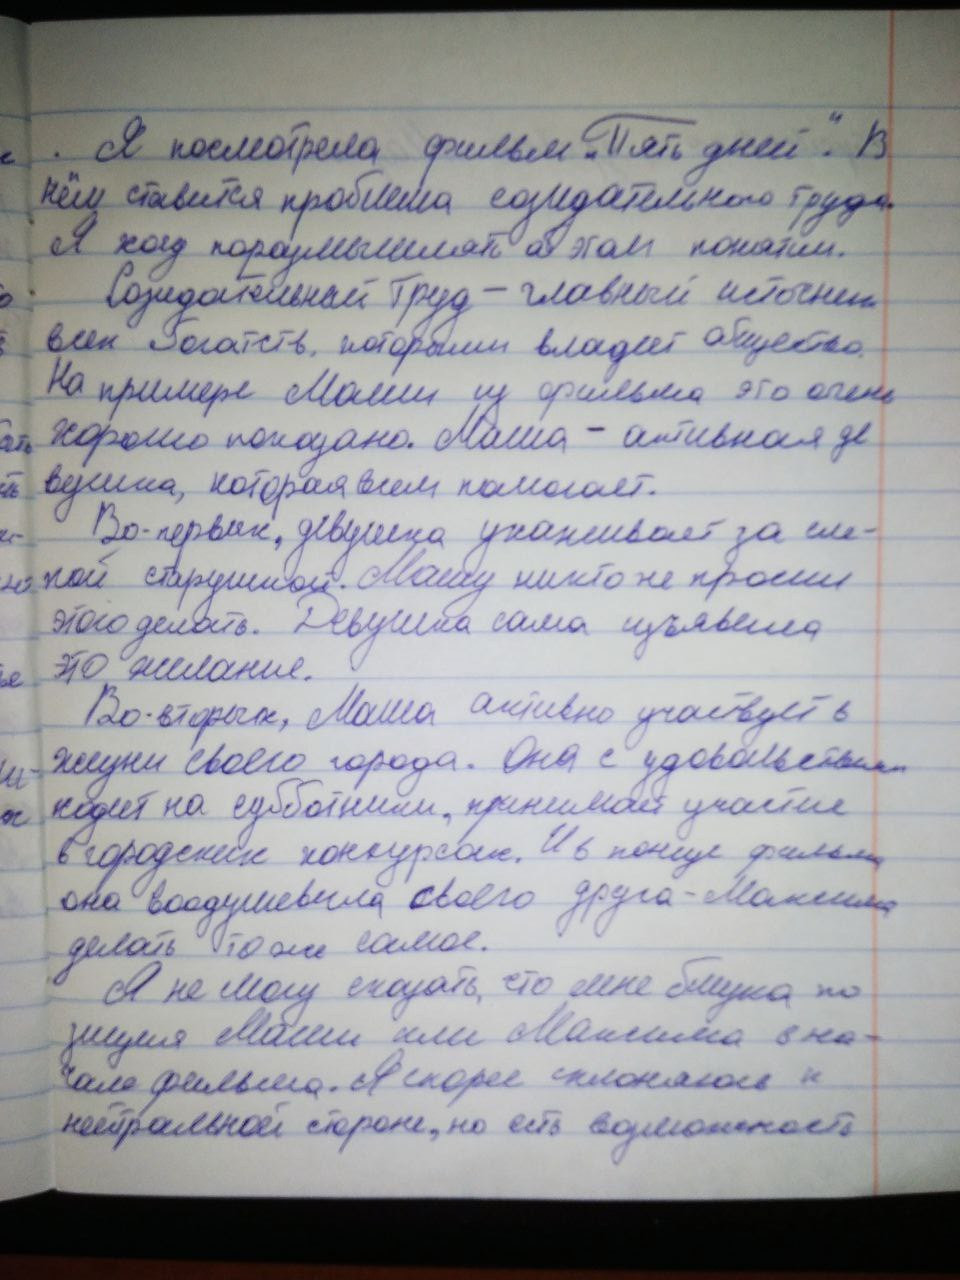 Я посмотрела фильм „Пять дней". В
нём ставится проблема созидательного труда.
Я хочу поразмышлять о этом понятии.
Созидательный труд – главный источник
всех богатств, которыми владеет общество.
На примере Маши из фильма это очень
хорошо показано. Маша – активная де
вушка, которая всем помогает.
Во-первых, девушка ухаживает за сле-
пой старушкой. Машу никто не просил
этого делать. Девушка сама изъявила
это желание.
Во-вторых, Маша активно участвует в
жизни своего города. Она с удовольствием
ходит на субботники, принимает участие
в городских конкурсах. И в конце фильма
она воодушевила своего друга – Максима
делать то же самое.
Я не могу сказать, что мне близка по
зиция Маши или Максима в на-
чале фильма. Я скорее склоняюсь к
нейтральной стороне, но есть возможность